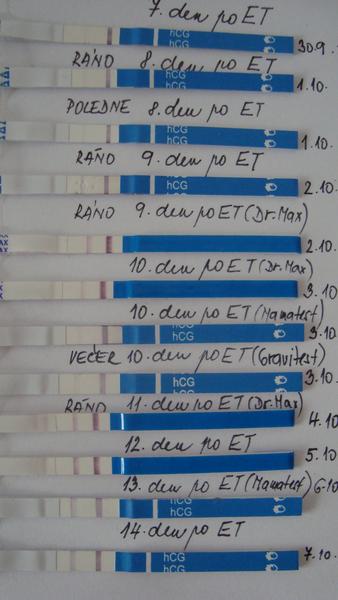 7. den po ET
hCG
hCG
30.9.
RÁNO 8. den po ET
hCG
hCG
1.10.
POLEDNE 8. den po ET
hCG
hCG
1.10.
RÁNO 9. den po ET
hCG
hCG
2.10.
RÁNO 9. den po ET (Dr.Max)
2.10.
10. den po ET (Dr.Max)
3.10
10. den po ET (Mamatest)
hCG
hCG
3.10
VEČER 10. den po ET (Gravitest)
hCG
hCG
3.10.
RÁNO 11. den po ET (Dr.Max)
4.10
12. den po ET
5.10
13. den po ET (Mamatest)
hCG
hCG
6.10
14. den po ET
hCG
hCG
7.10.